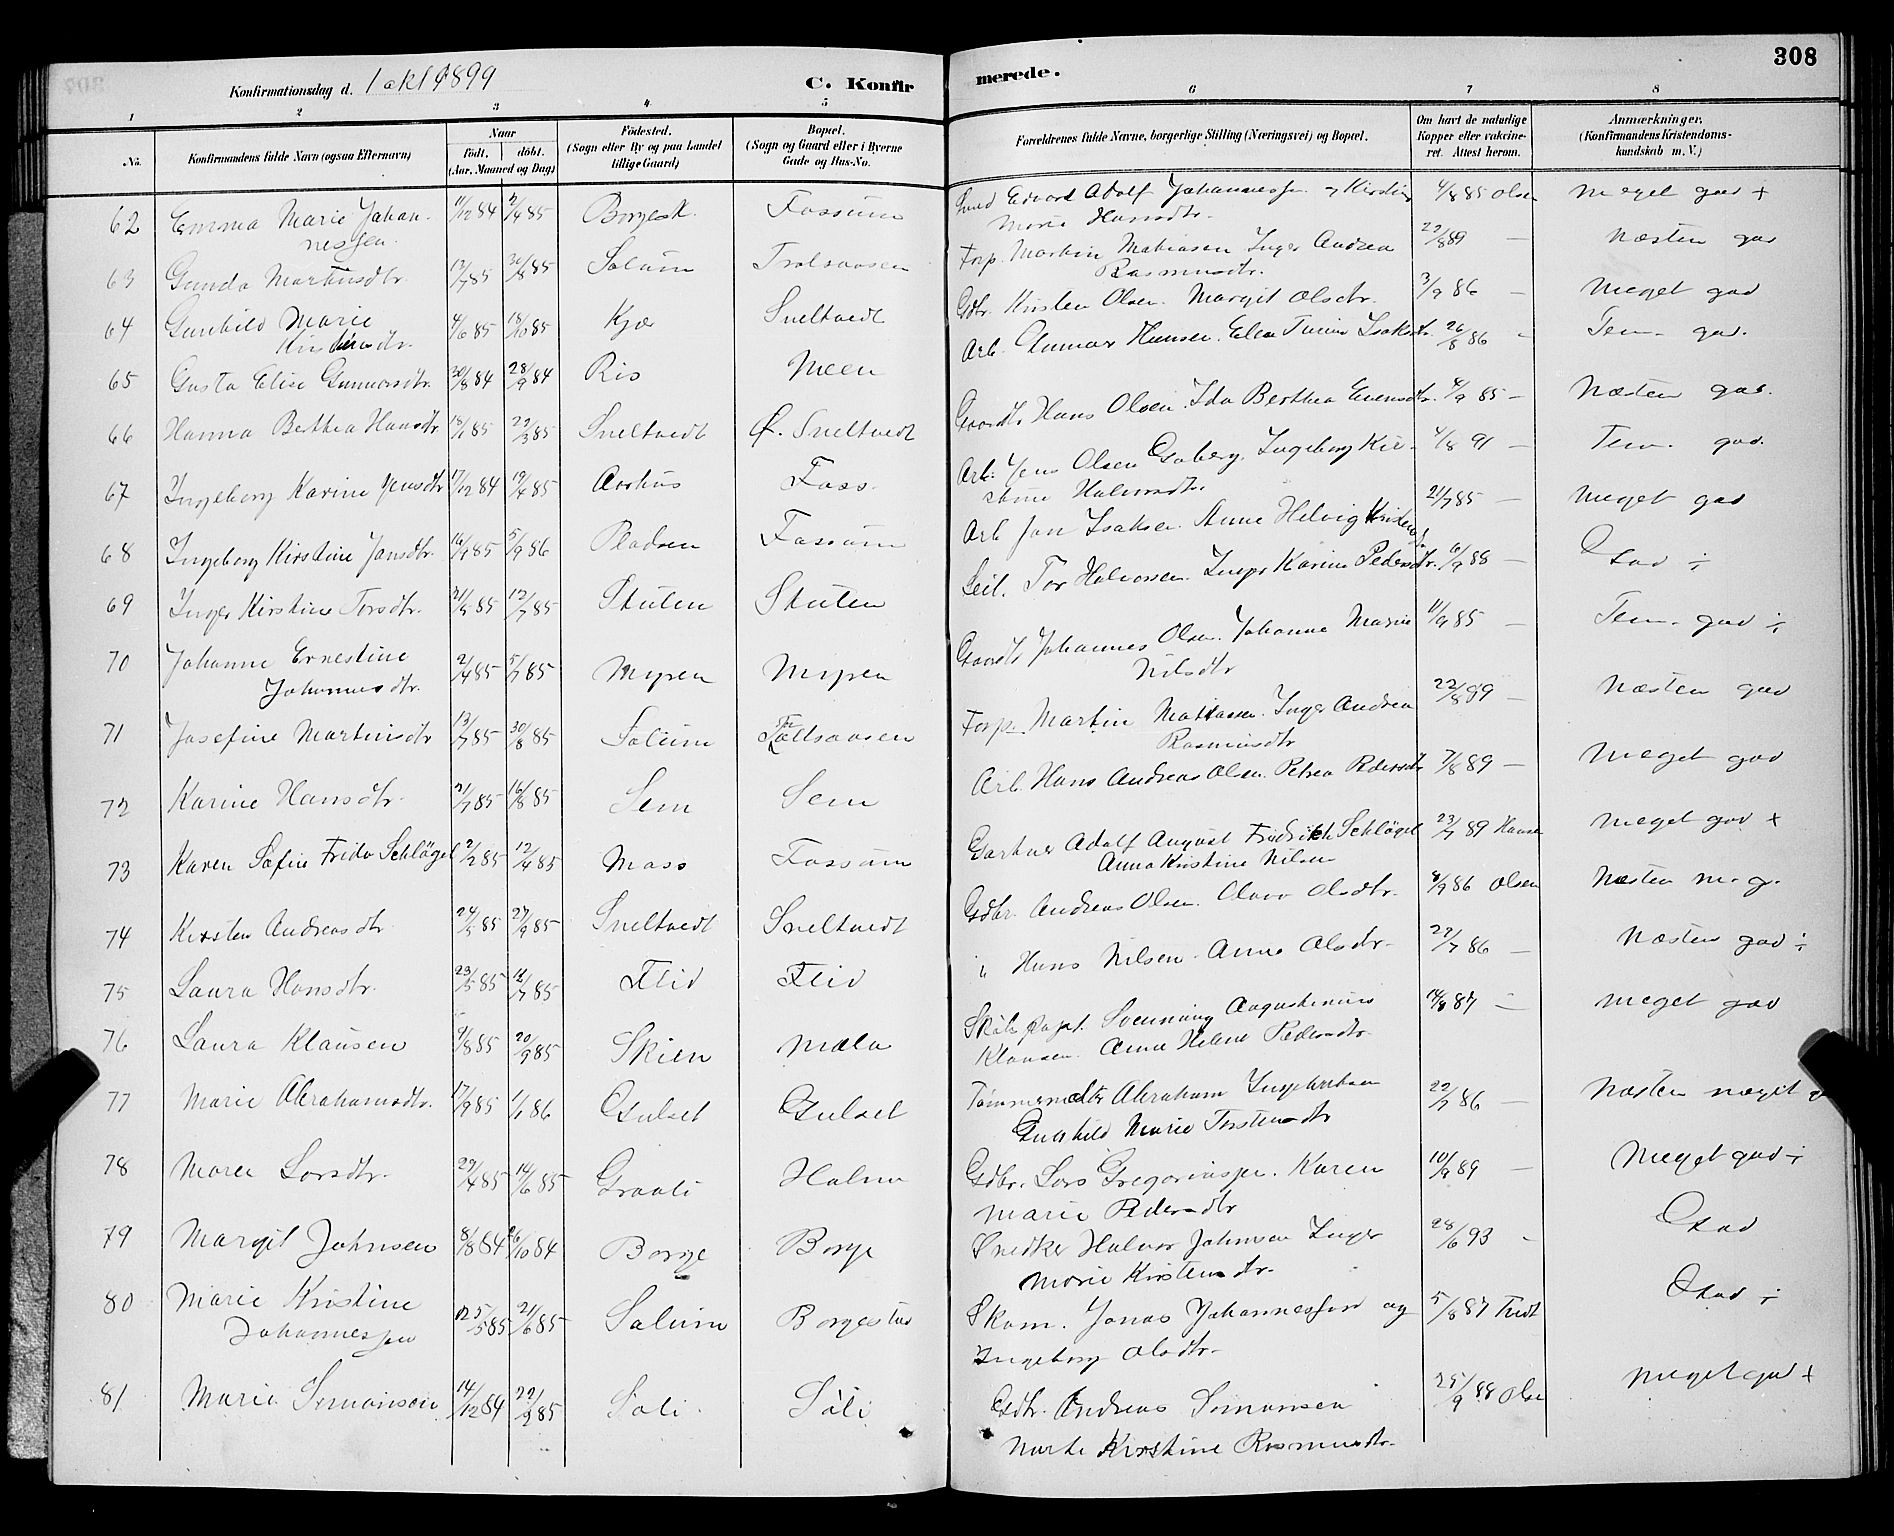 308
Konfirmationsdag d. 1 okt 1899
C. Konfir
merede.
1 2 3 4 5 6 7 8
No.
Konfirmandens fulde Navn (ogsaa Efternavn)
Naar
født. døbt.
(Aar, Maaned og Dag)
Fødested.
(Sogn eller By og paa Landet
tillige Gaard)
Bopæl.
(Sogn og Gaard eller i Byerne
Gade og Hus-No.
Forældrenes fulde Navne, borgerlige Stilling (Næringsvei) og Bopæl.
Om havt de naturlige
Kopper eller vakcine-
ret. Attest herom.
Anmærkninger.
(Konfirmandens Kristendoms-
kundskab m. V.)
62 Emma Marie Johan- 11/12 84 2/4 85 Borgesk. Fossum Edvard Adolf Johannessen og Kirstine 4/8 85 Olsen Meget god +
nessen. Marie Hansdtr.
63 Gunda Martinsdtr. 13/7 85 30/8 85 Solum Trolsaasen Forp. Martin Mathiasen Inger Andrea 22/8 89 — Næsten god
Rasmusdtr.
64 Gunhild Marie 4/6 85 18/10 85 Kjær Sneltvedt Gdbr. Kirsten Olsen. Margit Olsdtr. 3/9 86 — Meget god
Kirstensdtr.
65 Gusta Elise Gunnarsdtr. 30/8 84 28/9 84 Ris Meen Arb. Gunnar Hansen. Isaksdtr. 26/8 86 - Tem. god.
66 Hanna Berthea Hansdtr. 18/1 85 22/3 85 Sneltvedt Ø. Sneltvedt Gaardbr. Hans Olsen. Ida Berthea Evensdtr. 4/9 85 — Næsten god.
67 Ingeborg Karine Jensdtr 17/12 84 19/4 85 Aarhus Foss. Arb. Jens Olsen Ingeborg Kir- 4/8 91 — Tem. god.
stine Halvorsdtr.
68 Ingeborg Kirstine Jansdtr. 16/7 85 5/9 86 Pladsen Fossum Arb Jan Isaksen. Anne Helvig 21/7 85 — Meget god
69 Inger Kirstine Torsdtr. 21/5 85 12/7 85 Skuten Skuten Seil. Tor Halvorsen. Inger Karine Pedersdtr. 6/9 88 — God ÷
70 Johanne Ernestine 2/4 85 5/7 85 Myren Myren Gaardbr Johannes Olsen. Johanne Marie 11/9 85 — Tem. god ÷
Johannesdtr. Nilsdtr
71 Josefine Martinsdtr 13/7 85 30/8 85 Solum Forp. Martin Mathiasen. Inger Andrea 22/8 89 — Næsten god
Rasmusdtr
72 Karine Hansdtr. 31/7 85 16/8 85 Sem Sem Arb. Hans Andreas Olsen. Petrea Pedersdtr 7/8 89 — Meget god
73 Karen Sofie Frida Schlägel 2/2 85 12/4 85 Moss Fossum Gartner Adolf August Fredrik Schlägel 23/7 89 Hansen Meget god +
Anna Kristine Nilsen
74 Kirsten Andreasdtr 24/5 85 27/9 85 Sneltvedt Sneltvedt Gdbr. Andreas Olsen. Olava Olsdtr. 4/9 86 Olsen Næsten m. g.
75 Laura Hansdtr. 23/5 85 12/7 85 Flid Flid " Hans Nilsen. Anne Olsdtr. 22/7 86 — Næsten god ÷
76 Laura Klausen 9/8 85 20/9 85 Skien Mæla Svenning Augustinius 14/8 87 — Meget god
Klausen. Anne Helene Pedersdtr.
77 Marie Abrahamsdtr. 17/9 85 1/1 86 Gulset Gulset Tømmermdtr Abraham 22/7 86 — Næsten meget
Gunhild Marie Torstensdtr
78 Maren Larsdtr. 29/4 85 14/6 85 Graali Holm Gdbr. Lars Gregoriussen. Karen 10/9 89 — Meget god ÷
Marie Pedersdtr
79 Margit Johnsen 8/8 84 26/10 84 Borge Borge Snedker Halvor Johnsen Inger 28/6 93 - God
Marie Kirstensdtr.
80 Marie Kristine 5/5 85 21/6 85 Solum Borgestad Skom. Jonas Johannessen og 5/8 87 God ÷
Johannessen Ingeborg Olsdtr.
81 Marie Simonsen 14/12 84 22/2 85 Soli Soli Gdbr. Andreas Simonsen 25/9 88 Olsen Meget god +
Marte Kirstine Rasmusdtr.